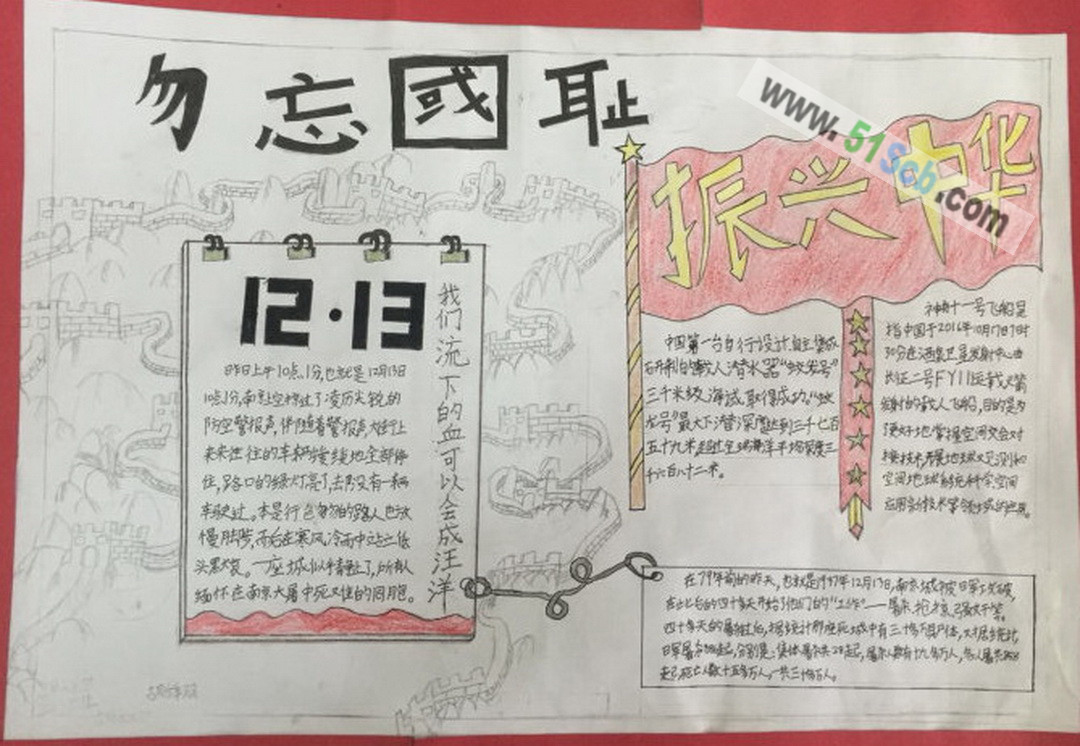 勿忘國耻
www.51Scb.com
振兴中华
12·13
我们流下的血可以会成汪洋
昨日上午10点1分,也就是12月13日
10点1分,南京上空响过了凌厉尖锐的
防空警报声,伴随着警报声,大街上
来来往往的车辆接续地全部停
住,路口的绿灯亮了,却没有一辆
车驶过。本是行色匆匆的路人也放
慢脚步,而后在寒风冷雨中站立低
头默哀。一座城似乎静止了,所有人
缅怀在南京大屠中死难的同胞。
中国第一台自行设计、自主集成
研制的载人潜水器“蛟龙号”
三千米级海试取得成功。“蛟
龙号”最大下潜深度达到三千七百
五十九米,超过全球海洋平均深度三
千六百八十二米。
神舟十一号飞船是
指中国于2016年10月17日7时
30分在酒泉卫星发射中心由
长征二号FY11运载火箭
发射的载人飞船,目的是为
更好地掌握空间交会对
接技术,开展地球观测和
空间地球系统科学空间
应用新技术等领域的应用。
在79年前的昨天,也就是1937年12月13日,南京城被日军攻破,
在此后的四十多天开始了他们的“工作”——屠杀、抢掠、强奸等。
四十多天的屠城后,据统计那座死城中有三十多万具尸体,